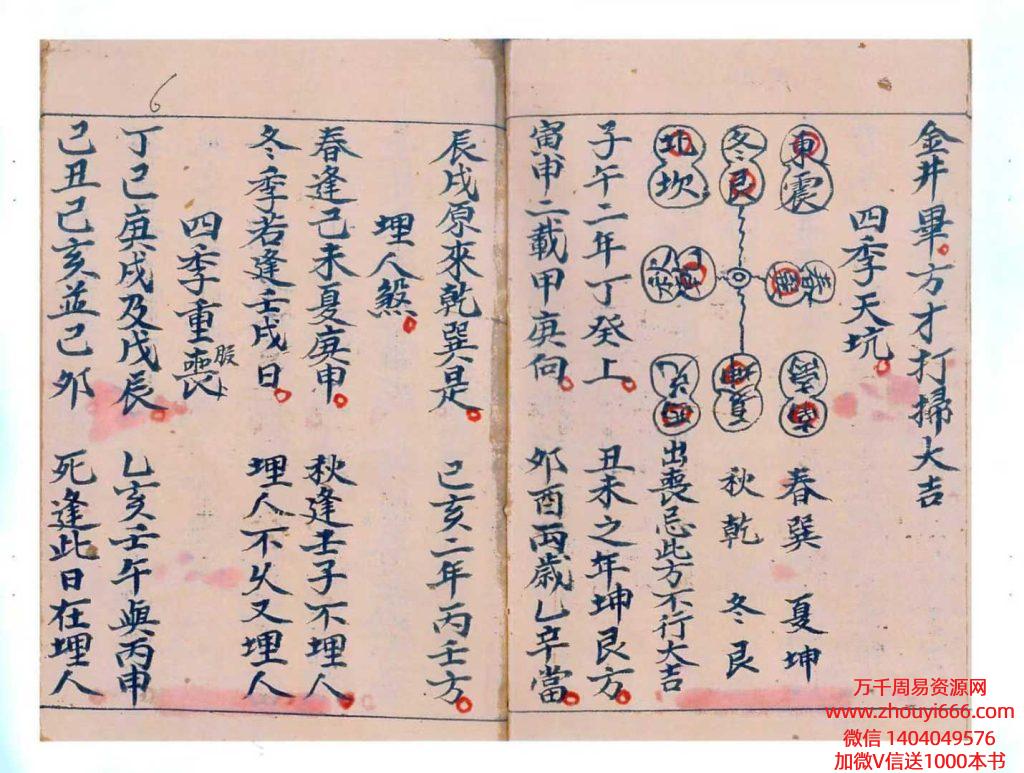 金井畢方才打掃大吉
四季天坑
東震
春巽 夏坤
冬艮
秋乾 冬艮
北坎
出喪忌此方不行大吉
子午二年丁癸上 丑未之年坤艮方
寅申二載甲庚向 卯酉兩歲乙辛當
辰戌原來乾巽是 巳亥二年丙壬方
埋人煞
春逢己未夏庚申 秋逢壬子不埋人
冬季若逢壬戌日 埋人不久又埋人
四季重喪服
丁巳庚戌及戊辰 乙亥壬午與丙申
己丑己亥並己卯 死逢此日在埋人
6
万千周易资源网
www.zhouyi666.com
微信 1404049576
加微V信送1000本书